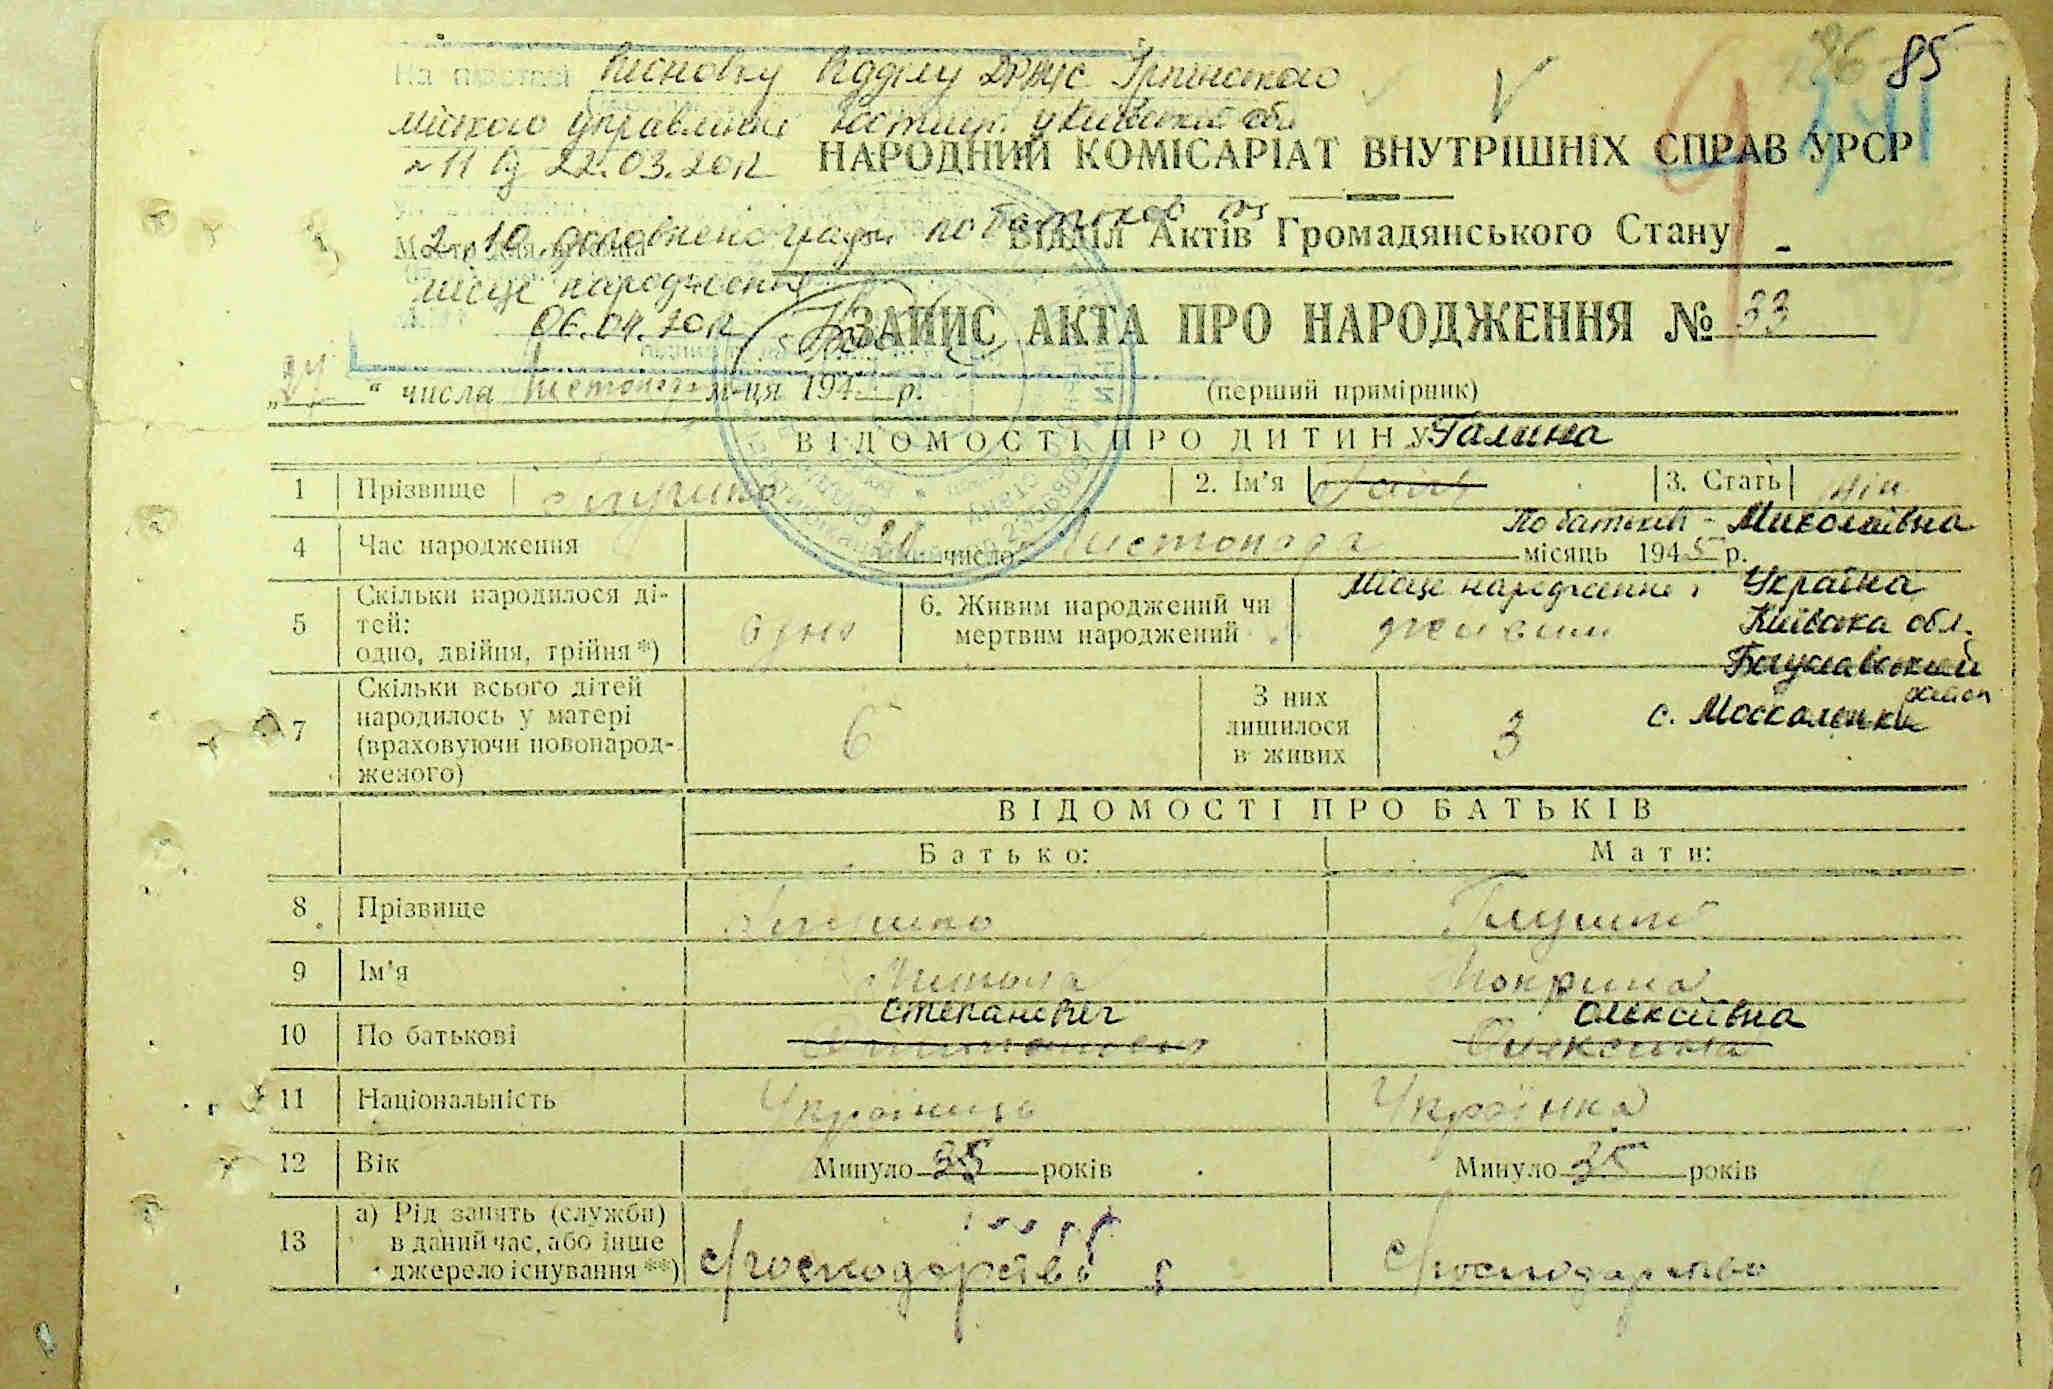 85
На підставі Висновку Відділу ДРАЦС Ірпінського
міського управління юстиції у Київській обл
№ 11 від 22.03.2012
НАРОДНИЙ КОМІСАРІАТ ВНУТРІШНІХ СПРАВ УРСР
2, 10 доповнено графи по батькові та
Відділ Актів Громадянського Стану
місце народження
06.04.2012
ЗАПИС АКТА ПРО НАРОДЖЕННЯ № 33
„ “ числа Листопада м-ця 194 р.
(перший примірник)
ВІДОМОСТІ ПРО ДИТИНУ Галина
1 Прізвище Глушко 2. Ім’я 3. Стать жін
По батькові - Миколаївна
4 Час народження число Листопада місяць 1945 р.
5 Скільки народилося дітей: одно, двійня, трійня *) одно 6. Живим народжений чи мертвим народжений живим
Місце народження: Україна
Київська обл.
Богуславський район
с. Москаленки
7 Скільки всього дітей народилось у матері (враховуючи новонародженого) 6 З них лишилося в живих 3
ВІДОМОСТІ ПРО БАТЬКІВ
Батько: Мати:
8 Прізвище Глушко Глушко
9 Ім’я Микола Мокрина
Степанович Олексіївна
10 По батькові
11 Національність Українець Українка
12 Вік Минуло 35 років Минуло 35 років
13 а) Рід занять (служби) в даний час, або інше джерело існування **) с/господарство с/господарство